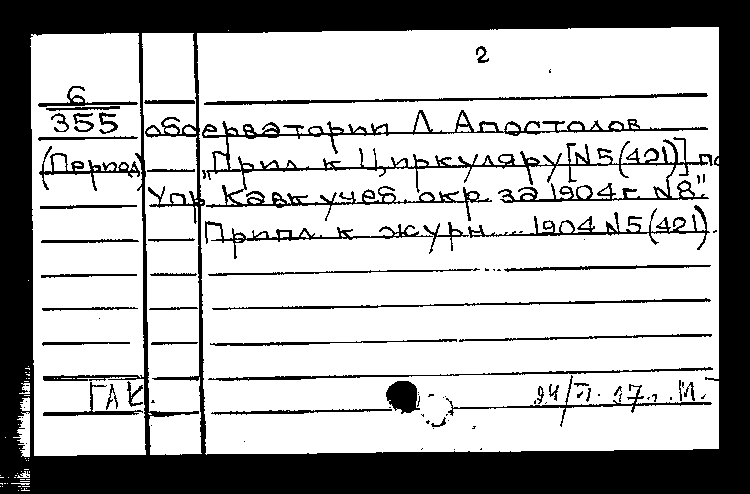 2
6
355 обсерватории Л. Апостолов
(Период) "Прил. к Циркуляру [N5(421)] по
Упр. Кавк. учеб. окр. за 1904 г. N8."
Припл. к журн. ... 1904 N5(421).
ГАК.